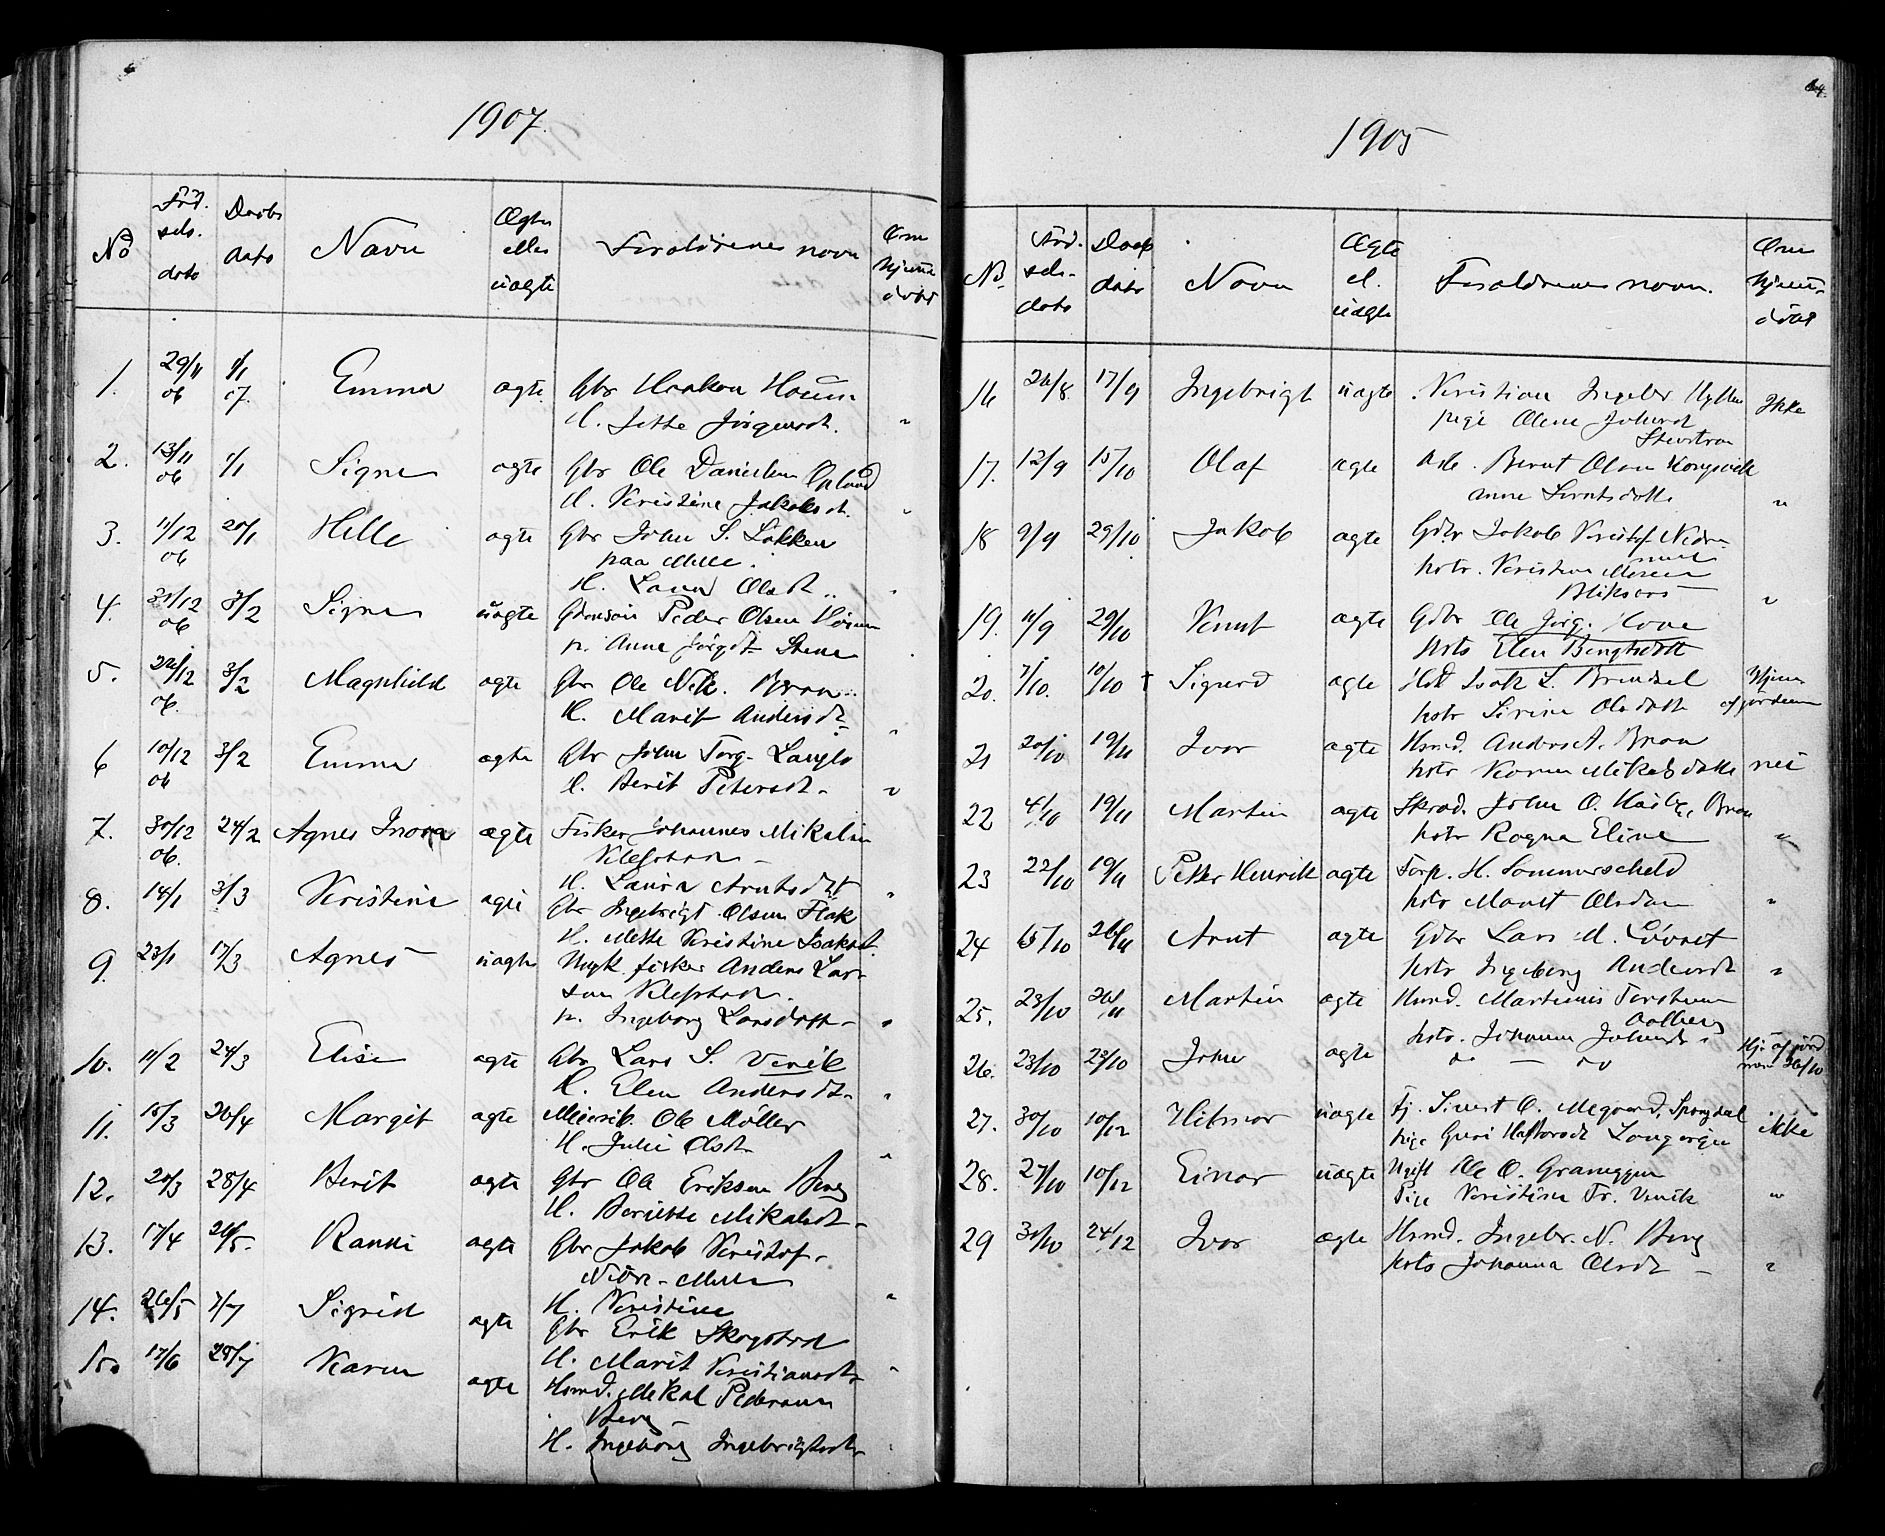 1907.
No Føds. sels. dato Daabs dato Navn Ægte eller uægte Forældrenes navn Om hjemmedøbt
1. 29/11 06 1/1 07. Emma ægte Gbr Haakon
H. Jette Jørgensdt. "
2. 13/11 06 1/1 Signe ægte Gbr Ole Danielsen Opland
H. Kristine Jakobsdt. "
3. 11/12 06 20/1 Helle ægte Gbr John S. Løkken
paa Melle.
H. Lava Olsdt.. "
4. 31/12 06 3/2 Signe uægte Peder Olsen
p. Anne Jørgdt. Stene "
5. 22/12 06. 3/2 Magnhild ægte Gbr Ole Nik. Bron..
H. Marit Andersdt. "
6 10/12 06 3/2 Emma ægte Gbr John Torg. Langlo
H. Berit Petersdt. "
7. 30/12 06. 24/2 Agnes Inora ægte Fisker Johannes Mikalsen
Klefstad
H. Laura Arntsdtr "
8. 14/1 3/3 Kristine ægte Gbr Ingebrigt Olsen Flak
H. Mette Kristine Isaksd.
9. 23/1 17/3 Agnes uægte Ungk. fisker Anders Lar-
sen Klefstad.
p. Ingeborg Larsdatt. "
10. 11/2 24/3 Elise ægte Gbr Lars S. Venik
H. Elen Andersdt. "
11. 15/3 26/4 Margit ægte Ole Møller
H. Julie Olsdt. "
12. 20/3 28/4 Berit ægte Gbr Ole Eriksen Berg
H. Beriette Mikalsdt.
13. 17/4 26/5. Ranni ægte Gbr Jakob Kristof.
Nidre-Melle
H. Kristine "
14. 26/5 7/7 Sigrid ægte Gbr Erik Skogstad
H. Marit Kristiansdt. "
15. 17/6 28/7 Karen ægte Hsmd. Mekal Pedersen
Berg
H. Ingeborg Ingebrigtsdtr
64.
1905
No. Føds. sels- dato Daab dato Navn Ægte el. uægte Forældrenes navn. Om hjemmedøbt
16 26/8 17/9 Ingebrigt uægte Kristian Ingebr Hyllen
pige Olene Johnsd Ikke
17. 12/9 15/10 Olaf ægte Bernt Olsen Kongsvik
Anne Sivertsdatte "
18 9/9 29/10 Jakob ægte Gdbr Jakob Kristof. Nidre
Kstr. Kristine
"
19. 11/9 29/10 Knut ægte Gdbr Ole Jørg. Hove
Kstr Elen Bengtsdtt
20. 7/10. 10/10 † Sigurd ægte Isak L. Brudsel
Kstr Serine Olsdatte Hjem af jordem
21 20/10 19/11 Ivar ægte Hsmd. Anders A. Bron
Kstr Karen Mikalsdatte nei
22 4/10 19/11 Martin ægte Skræd. John O. Bron
Kstr Ragna Eline "
23 22/10 19/11 Peter Henrik ægte Forp. H. Sommerscheld
Kstr Marit Olsdtr "
24 15/10 26/11 Arnt ægte Gdbr Lars M. Løvset
Kstr Ingeborg Andersdt "
25. 23/10 26/11 Martin ægte Hsmd. Martinus Torstensen
Aalberg
Kstr. Johanna Johnsdt.
26. 23/10 28/10 John ægte do — do Hj. af jord mor 26/10
27. 30/10 10/12 Hilmar uægte Tj. Sivert O. Megaard, Sprogdal
pige Guri Haftorsdt Langørgen ikke
28. 27/10 10/12 Einar uægte Ugift Ole O. Graneggen
Pige Kristine Fr. Venik "
29 30/10 24/12 Ivar ægte Hsmd. Ingebr. N. Berg
Kstr Johanna Olsdt — "